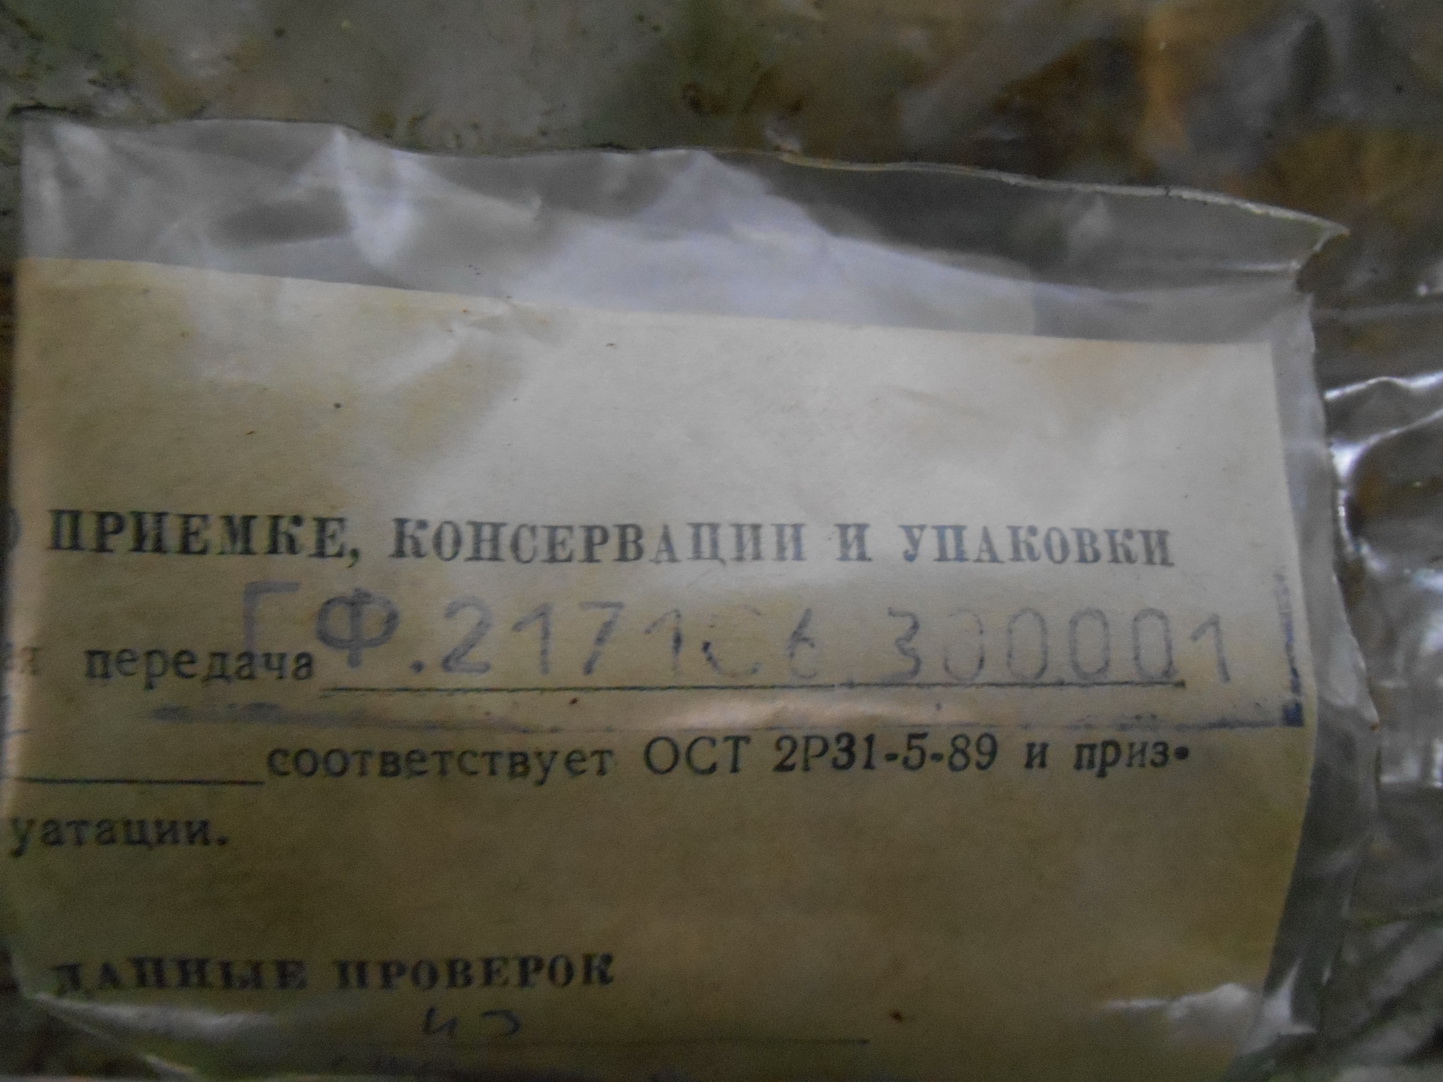 О ПРИЕМКЕ, КОНСЕРВАЦИИ И УПАКОВКИ
передача ГФ.2171С6.300001
соответствует ОСТ 2Р31-5-89 и приз-
уатации.
ДАННЫЕ ПРОВЕРОК